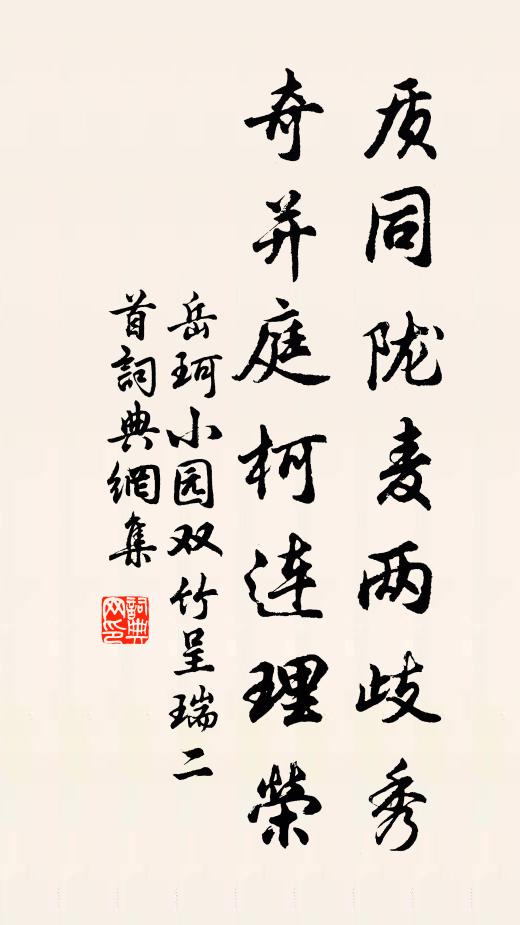 质同陇麦两歧秀
奇并庭柯连理榮
岳珂小园双竹呈瑞二
首詞典網集
詞典网印